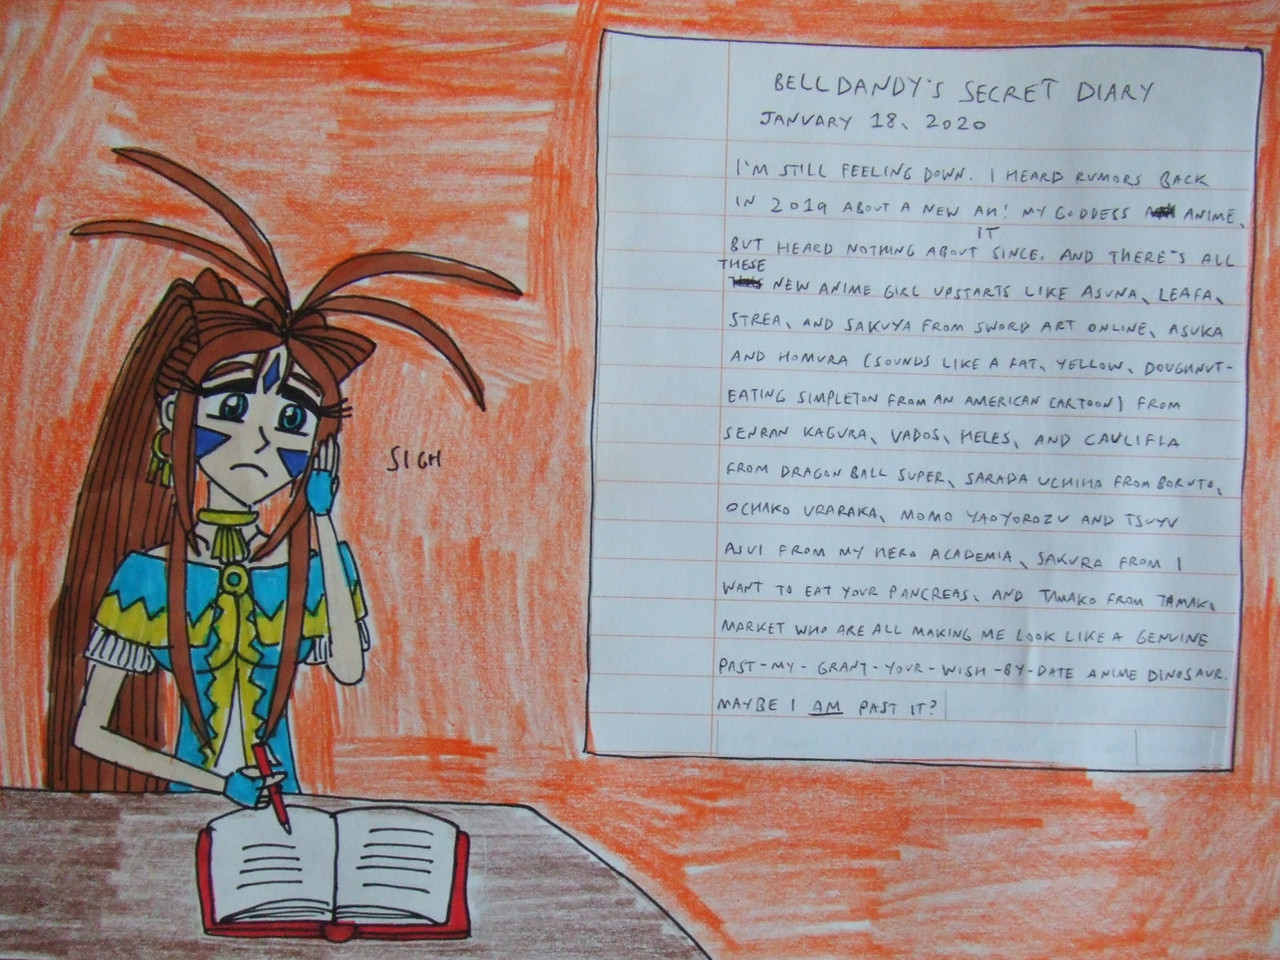 BELLDANDY'S SECRET DIARY
JANUARY 18, 2020
I'M STILL FEELING DOWN. I HEARD RUMORS BACK
IN 2019 ABOUT A NEW AH! MY GODDESS ANIME,
BUT HEARD NOTHING ABOUT IT SINCE. AND THERE'S ALL
THESE NEW ANIME GIRL UPSTARTS LIKE ASUNA, LEAFA,
STREA, AND SAKUYA FROM SWORD ART ONLINE, ASUKA
AND HOMURA (SOUNDS LIKE A FAT, YELLOW, DOUGHNUT-
EATING SIMPLETON FROM AN AMERICAN CARTOON) FROM
SENRAN KAGURA, VADOS, HELES, AND CAULIFLA
FROM DRAGON BALL SUPER, SARADA UCHIHA FROM BORUTO,
OCHAKO URARAKA, MOMO YAOYOROZU AND TSUYU
ASUI FROM MY HERO ACADEMIA, SAKURA FROM I
WANT TO EAT YOUR PANCREAS, AND TAMAKO FROM TAMAKO
MARKET WHO ARE ALL MAKING ME LOOK LIKE A GENUINE
PAST-MY-GRANT-YOUR-WISH-BY-DATE ANIME DINOSAUR.
MAYBE I AM PAST IT?
SIGH